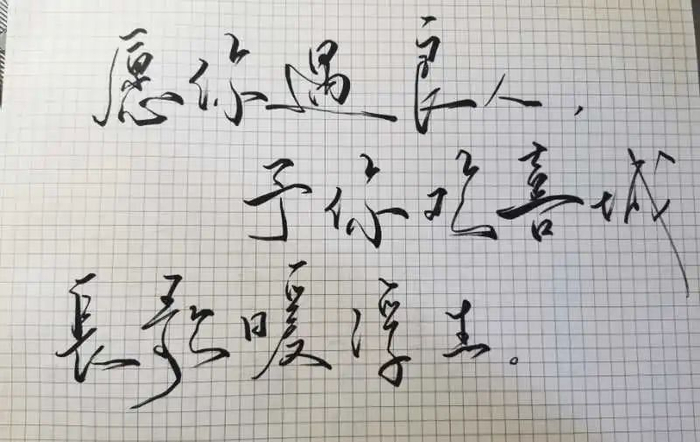 愿你遇良人,
予你欢喜城
長歌暖浮生。